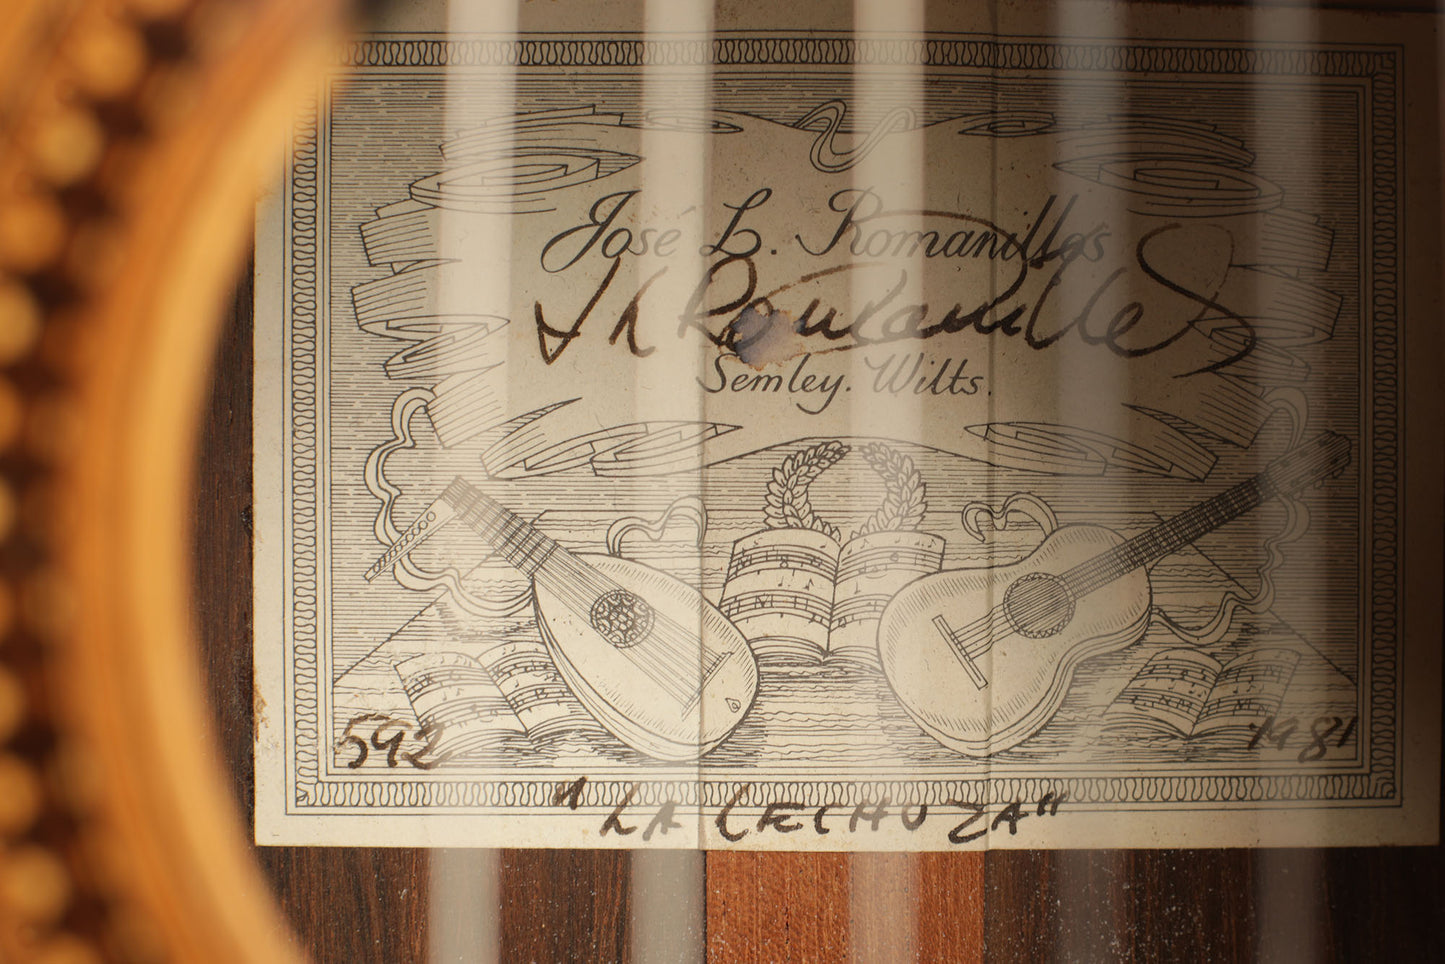 José L. Romanillos
J L Romanillos
Semley. Wilts.
592
1981
"LA LECHUZA"